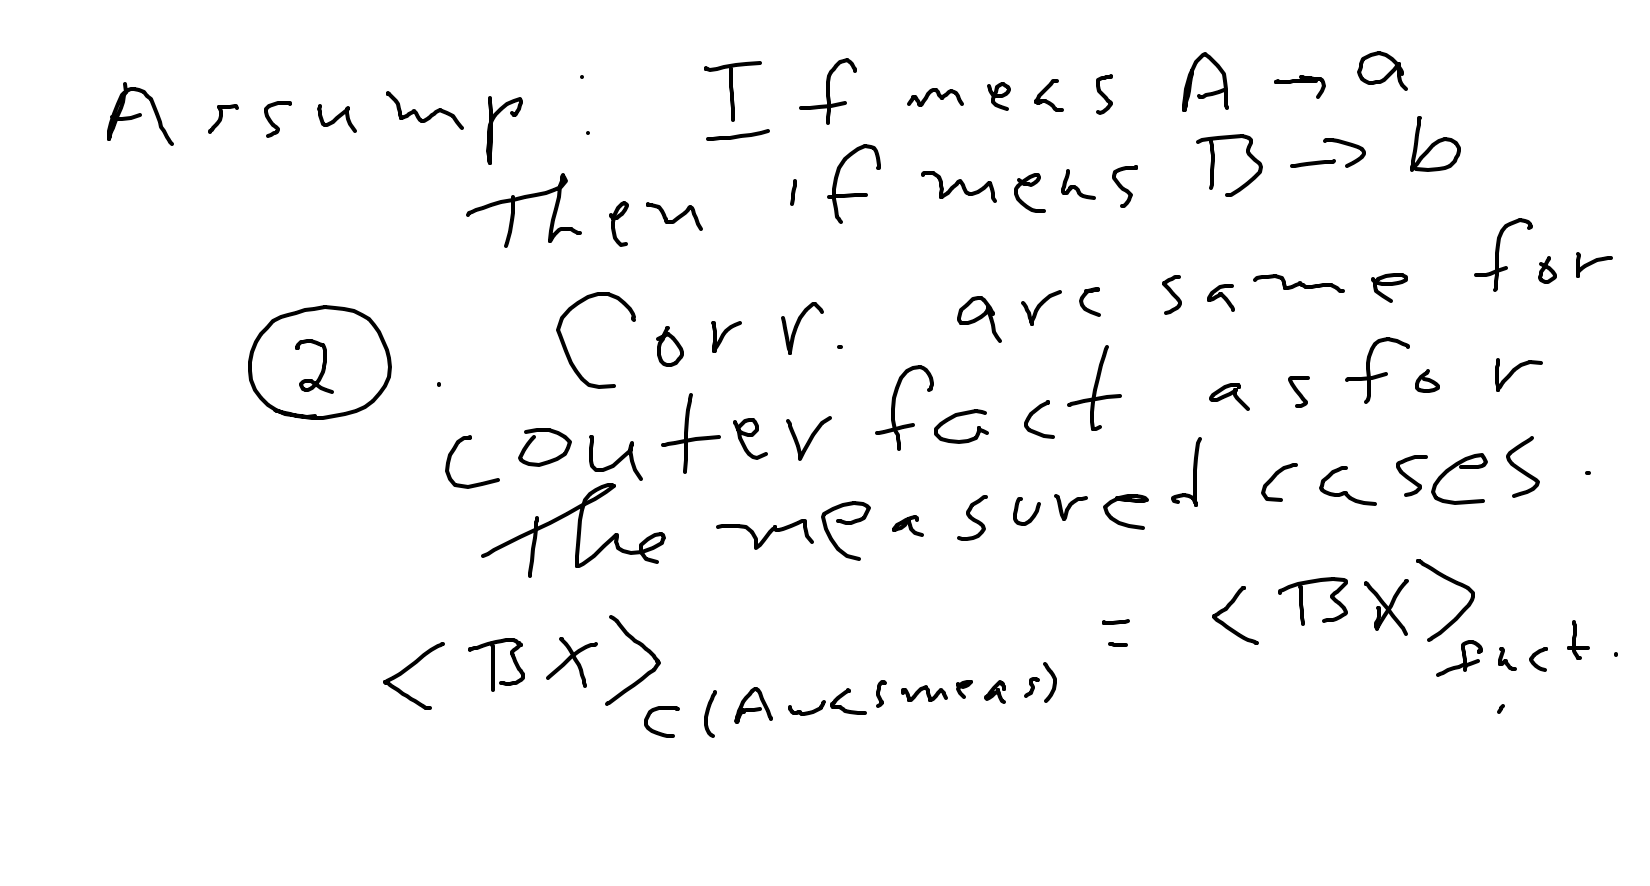 Assump: If meas A → a
Then if meas B → b
② . Corr. are same for
couterfact as for
the measured cases.
<BX>c(A was meas) = <BX>fact.